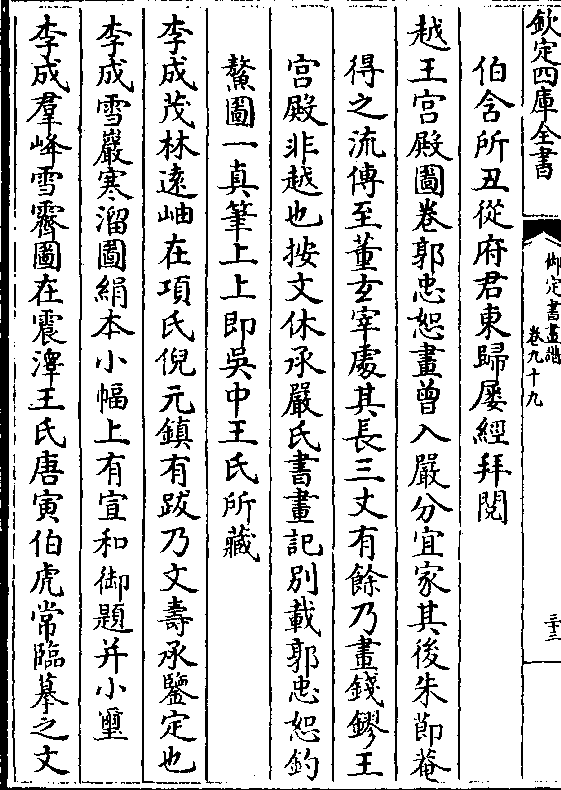 欽定四庫全書
御定書畫譜
卷九十九
三十三
伯含所丑從府君東歸屡經拜閱
越王宮殿圖卷郭忠恕畫曾入嚴分宜家其後朱節菴
得之流傳至董玄宰處其長三丈有餘乃畫錢鏐王
宮殿非越也按文休承嚴氏書畫記別載郭忠恕釣
鰲圖一真筆上上即吳中王氏所藏
李成茂林遠岫在項氏倪元鎮有跋乃文壽承鑒定也
李成雪巖寒溜圖絹本小幅上有宣和御題并小璽
李成羣峰雪霽圖在震澤王氏唐寅伯虎常臨摹之文